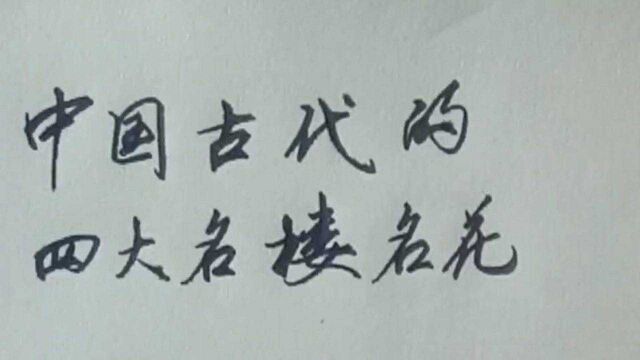 中国古代的
四大名楼名花